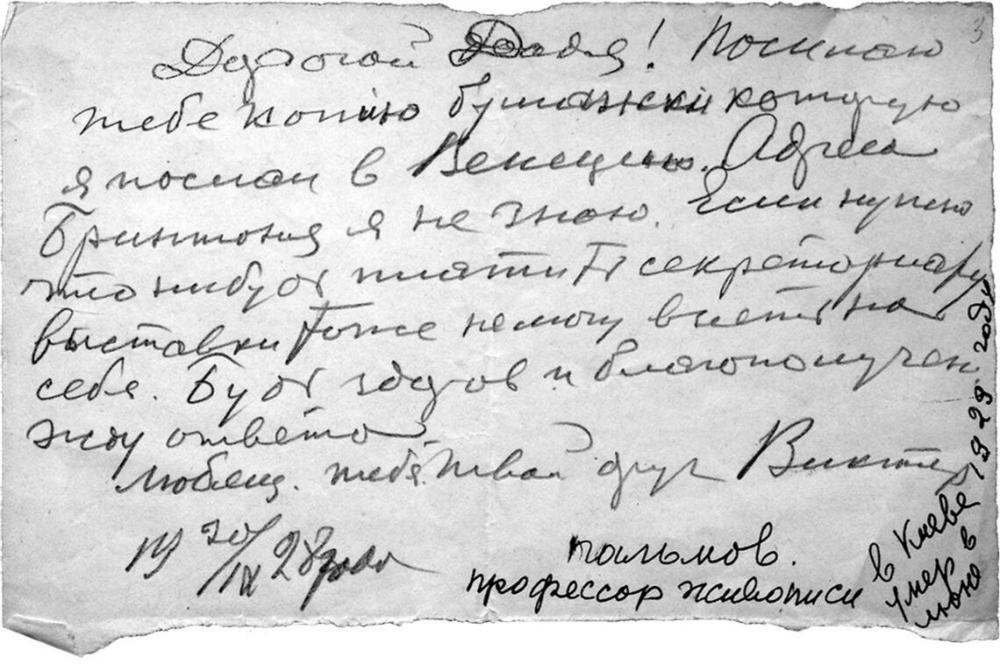 Дорогой Додя! Посылаю
тебе копию бумажки которую
я послал в Венецию. Адреса
Бринтона я не знаю. Если нужно
что нибудь платить секретариату
выставки тоже не могу взять на
себя. Будь здоров и благополучен
жду ответа
Любящ. тебя твой друг Виктор
19 30/IX 28 года
пальмов.
профессор живописи
умер в Киеве
в июне 1929 году
3